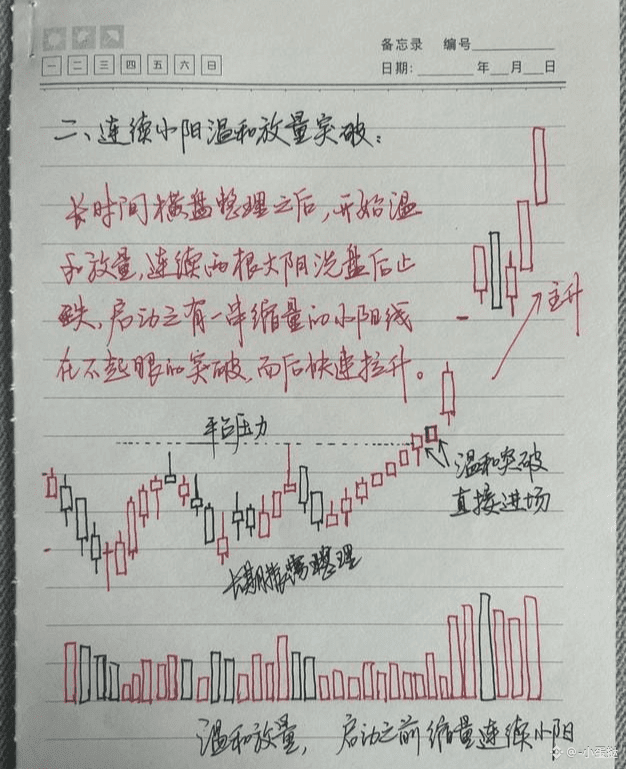 备忘录 编号
一 二 三 四 五 六 日
日期: 年 月 日
二、连续小阳温和放量突破:
长时间横盘整理之后,开始温
和放量,连续两根大阳洗盘后止
跌,启动之有一串缩量的小阳线
在不起眼的突破,而后快速拉升。
主升
平台压力
温和突破
直接进场
长期横盘整理
温和放量, 启动之前缩量连续小阳